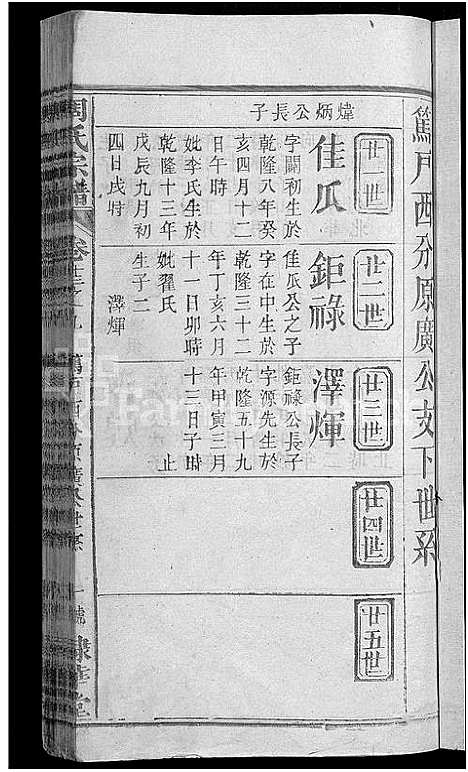 萬戶西分原廣公支下世系
煒炳公長子
廿一世
佳瓜
字闢初生於
乾隆八年癸
亥四月十二
日午時
妣李氏生於
乾隆十三年
戊辰九月初
四日戌時
廿二世
鉅祿
佳瓜公之子
字在中生於
乾隆三十二
年丁亥六月
十一日卯時
妣翟氏
生子二
澤煇
廿三世
澤煇
鉅祿公長子
字源先生於
乾隆五十九
年甲寅三月
十三日子時
止
廿四世
廿五世
周氏宗譜
卷